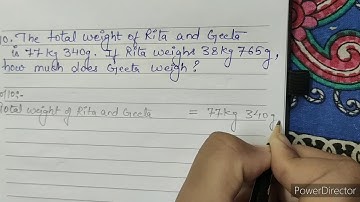 10. The total weight of Rita and Geeta
is 77kg 340g. If Rita weighs 38kg 765g,
how much does Geeta weigh?
Total weight of Rita and Geeta = 77kg 340g
PowerDirector